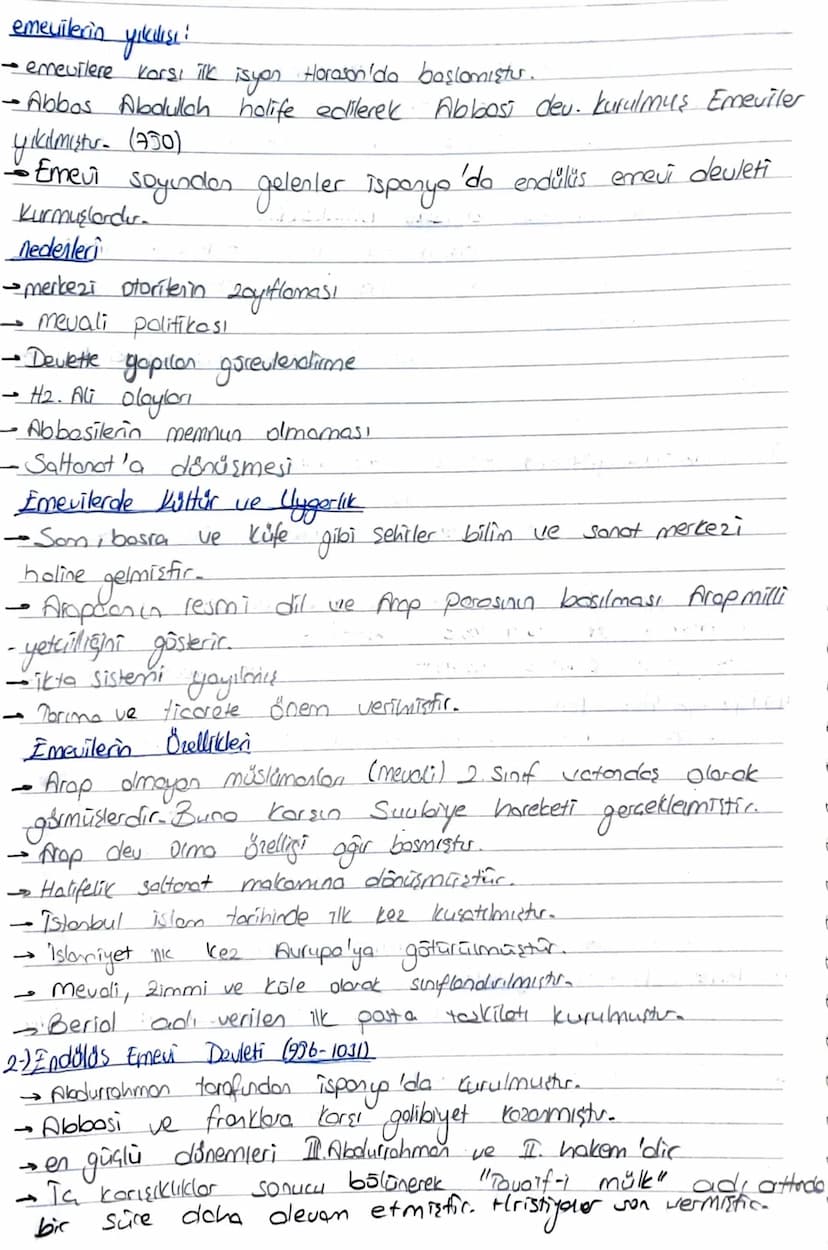 emevilerin yıkılışı:
→ emevilere karşı ilk isyan Horasan'da başlamıştır.
→ Abbas Abdullah halife edilerek Abbasi dev. kurulmuş Emeviler
yıkılmıştır. (750)
→ Emevi soyundan gelenler ispanya'da endülüs emevi devleti
kurmuşlardır.
nedenleri
→ merkezi otoritenin zayıflaması
→ mevali politikası
→ Devlette yapılan görevlendirme
→ Hz. Ali olayları
→ Abbasilerin memnun olmaması
→ Saltanat'a dönüşmesi
Emevilerde Kültür ve Uygarlık
→ Şam, basra ve Kûfe gibi şehirler bilim ve sanat merkezi
haline gelmiştir.
→ Arapçanın resmi dil ve Arap parasının basılması Arap milli
- yetçiliğini gösterir.
→ ikta sistemi yayılmış
→ Tarıma ve ticarete önem verilmiştir.
Emevilerin Özellikleri
→ Arap olmayan müslümanları (mevali) 2. sınıf vatandaş olarak
görmüşlerdir. Buna karşın Şuubiye hareketi gerçekleşmiştir.
→ Arap dev olma özelliği ağır basmıştır.
→ Halifelik saltanat makamına dönüşmüştür.
→ İstanbul islam tarihinde ilk kez kuşatılmıştır.
→ İslamiyet ilk kez Avrupa'ya götürülmüştür.
→ Mevali, zimmi ve köle olarak sınıflandırılmıştır.
→ Berid adı verilen ilk posta teşkilatı kurulmuştur.
2-) Endülüs Emevi Devleti (996-1031)
→ Abdurrahman tarafından ispanya'da kurulmuştur.
→ Abbasi ve franklara karşı galibiyet kazanmıştır.
→ en güçlü dönemleri III. Abdurrahman ve II. hakem'dir
→ İç karışıklıklar sonucu bölünerek "Tavaif-i mülk" adı altında
bir süre daha devam etmiştir. Hristiyanlar son vermiştir.